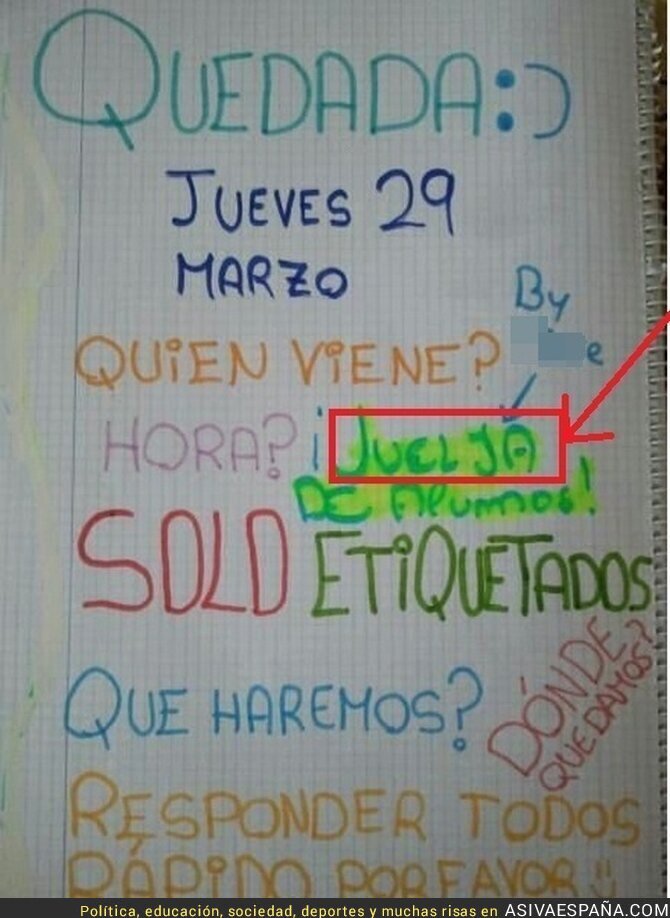 QUEDADA:)
JUEVES 29
MARZO
By
e
QUIEN VIENE?
HORA? ¡JUELJA
DE Alumnos!
SOLO ETiQUETADOS
QUE HAREMOS?
DÓNDE
QUEDAMOS?
RESPONDER TODOS
RÁPIDO POR FAVOR :)
Política, educación, sociedad, deportes y muchas risas en ASIVAESPAÑA.COM